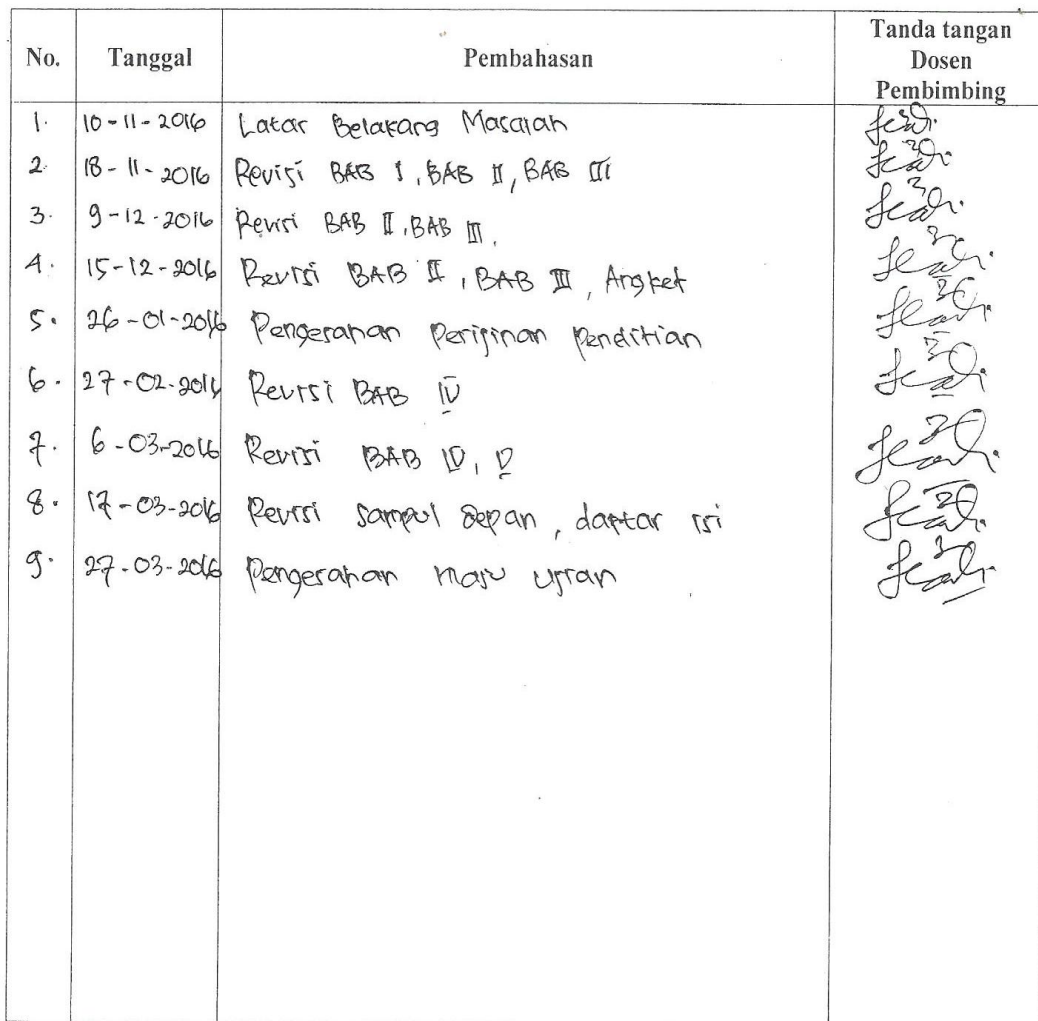 No. Tanggal Pembahasan Tanda tangan Dosen Pembimbing
1. 10-11-2016 Latar Belakang Masalah
2. 18-11-2016 Revisi BAB I, BAB II, BAB III
3. 9-12-2016 Revisi BAB II, BAB III.
4. 15-12-2016 Revisi BAB II, BAB III, Angket
5. 26-01-2016 Pengesahan Perijinan Penelitian
6. 27-02-2016 Revisi BAB IV
7. 6-03-2016 Revisi BAB IV, V
8. 17-03-2016 Revisi sampul depan, daftar isi
9. 27-03-2016 Pengesahan maju ujian